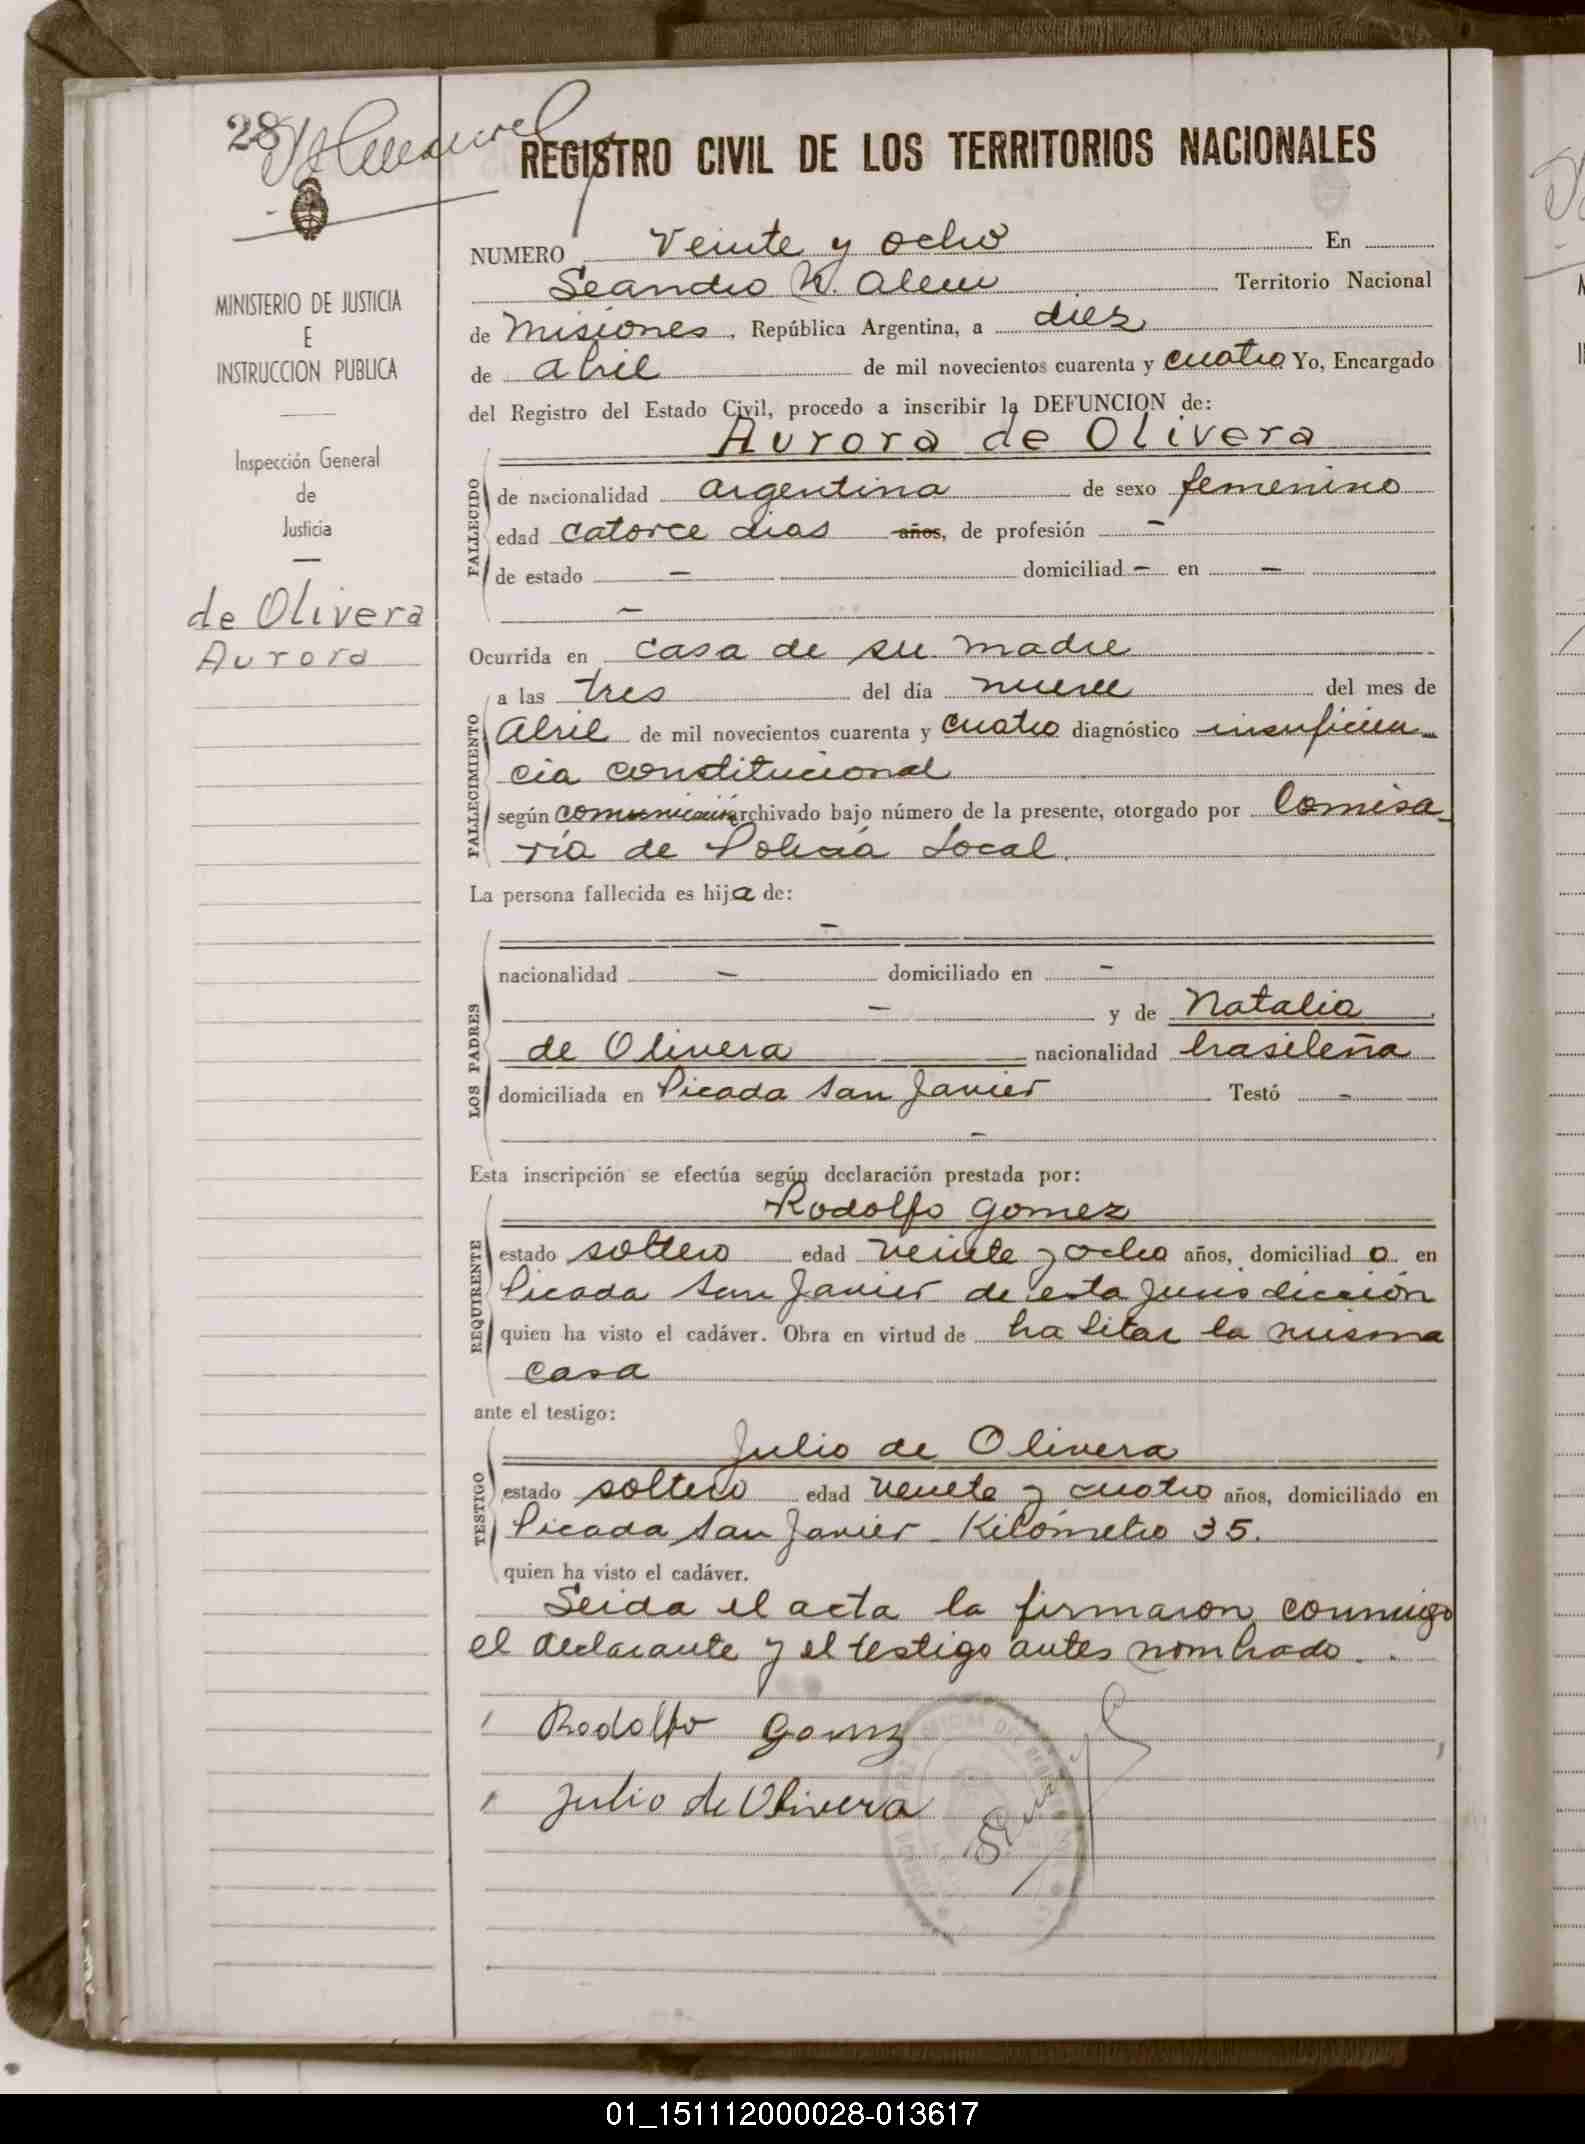 28
REGISTRO CIVIL DE LOS TERRITORIOS NACIONALES
MINISTERIO DE JUSTICIA
E
INSTRUCCION PUBLICA
Inspección General
de
Justicia
de Olivera
Aurora
NUMERO Veinte y ocho En
Leandro N. Alem Territorio Nacional
de Misiones, República Argentina, a diez
de abril de mil novecientos cuarenta y cuatro Yo, Encargado
del Registro del Estado Civil, procedo a inscribir la DEFUNCION de:
Aurora de Olivera
FALLECIDO
de nacionalidad argentina de sexo femenino
edad catorce dias años, de profesión -
de estado - domiciliad - en -
-
Ocurrida en casa de su madre
FALLECIMIENTO
a las tres del dia nueve del mes de
Abril de mil novecientos cuarenta y cuatro diagnóstico insuficien-
cia constitucional
según archivado bajo número de la presente, otorgado por Comisa-
ría de Policía Local.
La persona fallecida es hija de:
-
LOS PADRES
nacionalidad - domiciliado en -
- y de Natalia
de Olivera nacionalidad brasileña
domiciliada en Picada San Javier Testó -
-
Esta inscripción se efectúa según declaración prestada por:
Rodolfo Gomez
REQUIRENTE
estado soltero edad veinte y ocho años, domiciliad o en
Picada San Javier de esta Jurisdicción
quien ha visto el cadáver. Obra en virtud de habitar la misma
casa
ante el testigo:
Julio de Olivera
TESTIGO
estado soltero edad veinte y cuatro años, domiciliado en
Picada San Javier - Kilómetro 35.
quien ha visto el cadáver.
Leida el acta la firmaron conmigo
el declarante y el testigo antes nombrado. .
Rodolfo Gomez
Julio de Olivera
01_151112000028-013617